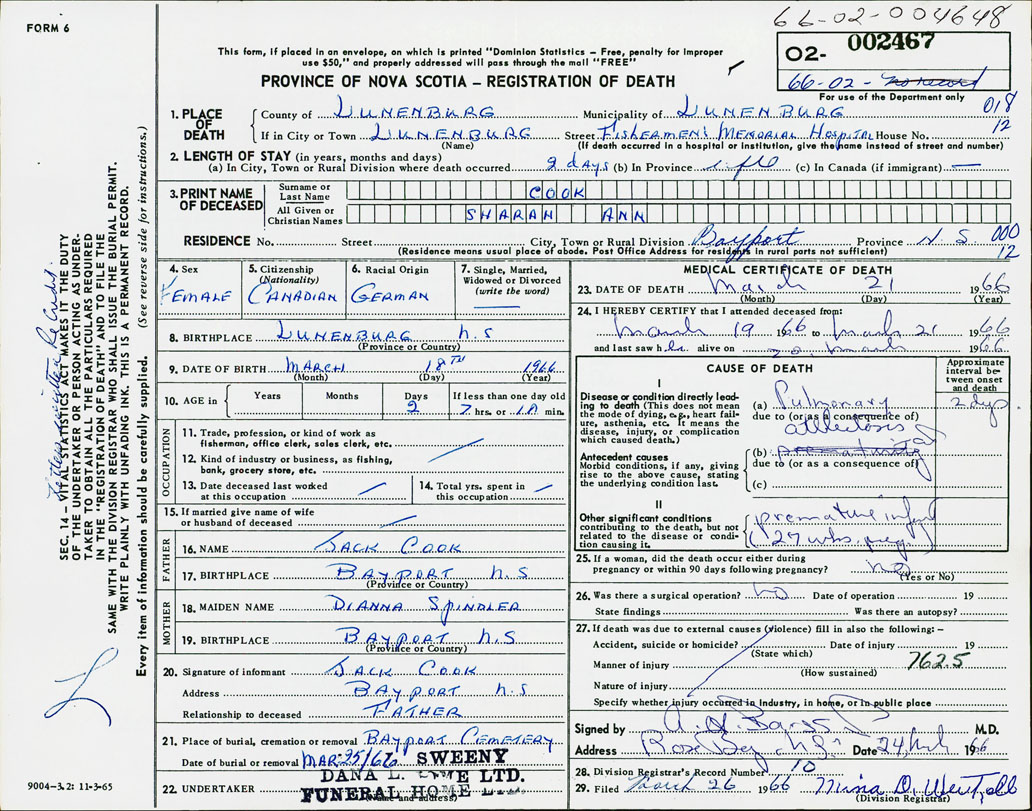 66-02-004648
FORM 6
02- 002467
66-02- no record
For use of the Department only
This form, if placed in an envelope, on which is printed "Dominion Statistics – Free, penalty for improper
use $50," and properly addressed will pass through the mail "FREE"
PROVINCE OF NOVA SCOTIA – REGISTRATION OF DEATH
018
12
1. PLACE OF DEATH
County of LUNENBURG Municipality of LUNENBURG
If in City or Town LUNENBURG Street FISHERMEN'S MEMORIAL HOSPITAL House No.
(Name) (If death occurred in a hospital or institution, give the name instead of street and number)
2. LENGTH OF STAY (in years, months and days)
(a) In City, Town or Rural Division where death occurred 2 days (b) In Province life (c) In Canada (if immigrant) —
3. PRINT NAME OF DECEASED
Surname or Last Name COOK
All Given or Christian Names SHARAN ANN
RESIDENCE No. Street City, Town or Rural Division Bayport Province N.S. 000
12
(Residence means usual place of abode. Post Office Address for residents in rural parts not sufficient)
4. Sex FEMALE
5. Citizenship (Nationality) CANADIAN
6. Racial Origin GERMAN
7. Single, Married, Widowed or Divorced (write the word) —
8. BIRTHPLACE LUNENBURG N.S
(Province or Country)
9. DATE OF BIRTH MARCH 18TH 1966
(Month) (Day) (Year)
10. AGE in Years Months Days 2 If less than one day old 7 hrs. or 10 min.
OCCUPATION
11. Trade, profession, or kind of work as
fishermon, office clerk, sales clerk, etc.
12. Kind of industry or business, as fishing,
bank, grocery store, etc.
13. Date deceased last worked
at this occupation
14. Total yrs. spent in
this occupation
15. If married give name of wife
or husband of deceased
FATHER
16. NAME JACK COOK
17. BIRTHPLACE BAYPORT N.S
(Province or Country)
MOTHER
18. MAIDEN NAME DIANNA SPINDLER
19. BIRTHPLACE BAYPORT N.S
(Province or Country)
20. Signature of informant JACK COOK
Address BAYPORT N.S
Relationship to deceased FATHER
21. Place of burial, cremation or removal BAYPORT CEMETERY
Date of burial or removal MAR 25/66
22. UNDERTAKER
(Name and address)
DANA L. SWEENY
FUNERAL HOME LTD.
MEDICAL CERTIFICATE OF DEATH
23. DATE OF DEATH March 21 1966
(Month) (Day) (Year)
24. I HEREBY CERTIFY that I attended deceased from:
March 19 1966 to March 21 1966
and last saw her alive on 20 March 1966
CAUSE OF DEATH
Approximate interval between onset and death
I
Disease or condition directly leading to death (This does not mean
the mode of dying, e.g., heart failure, asthenia, etc. It means the
disease, injury, or complication
which caused death.)
(a) Pulmonary 2 dys
due to (or as a consequence of)
atelectosis
Antecedent causes
Morbid conditions, if any, giving
rise to the above cause, stating
the underlying condition last.
(b) prematurity
due to (or as a consequence of)
(c)
II
Other significant conditions
contributing to the death, but not
related to the disease or condition causing it.
premature infant
(27 wks. preg)
25. If a woman, did the death occur either during
pregnancy or within 90 days following pregnancy? no
(Yes or No)
26. Was there a surgical operation? no Date of operation 19
State findings Was there an autopsy?
27. If death was due to external causes (violence) fill in also the following:–
Accident, suicide or homicide? Date of injury 19
(State which) 762.5
Manner of injury
(How sustained)
Nature of injury
Specify whether injury occurred in industry, in home, or in public place
Signed by M.D.
Address Rose Bay N.S. Date 24 Mch 1966
28. Division Registrar's Record Number 10
29. Filed March 26 1966
(Division Registrar)
SEC. 14 – VITAL STATISTICS ACT MAKES IT THE DUTY
OF THE UNDERTAKER OR PERSON ACTING AS UNDER-
TAKER TO OBTAIN ALL THE PARTICULARS REQUIRED
IN THE "REGISTRATION OF DEATH" AND TO FILE THE
SAME WITH THE DIVISION REGISTRAR WHO SHALL ISSUE THE BURIAL PERMIT.
WRITE PLAINLY WITH UNFADING INK. THIS IS A PERMANENT RECORD.
Every item of information should be carefully supplied. (See reverse side for instructions.)
9004-3.2: 11-3-65